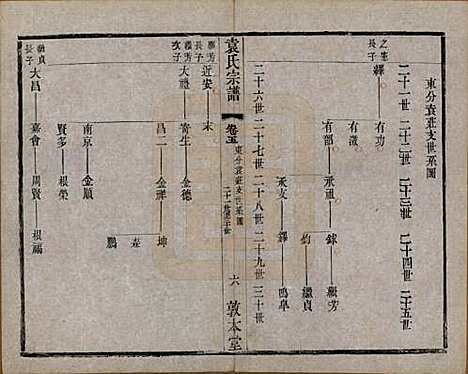 東分袁莊支世系圖
二十一世 二十二世 二十三世 二十四世 二十五世
之憲長子
繹
有功
有徵
有部
承祖
錸
繼芳
鈞
繼貞
承文
鐸
鳴阜
二十六世 二十七世 二十八世 二十九世 三十世
袁氏宗譜
卷五
東分袁莊支世系圖
二十一世至三十世
六
敦本堂
繼芳長子
近安
末
繼芳次子
大禮
寄生
金德
昌二
金祥
坤
森
鵬
南京
金順
賢多
根榮
嘉會
周賢
根福
繼貞長子
大昌